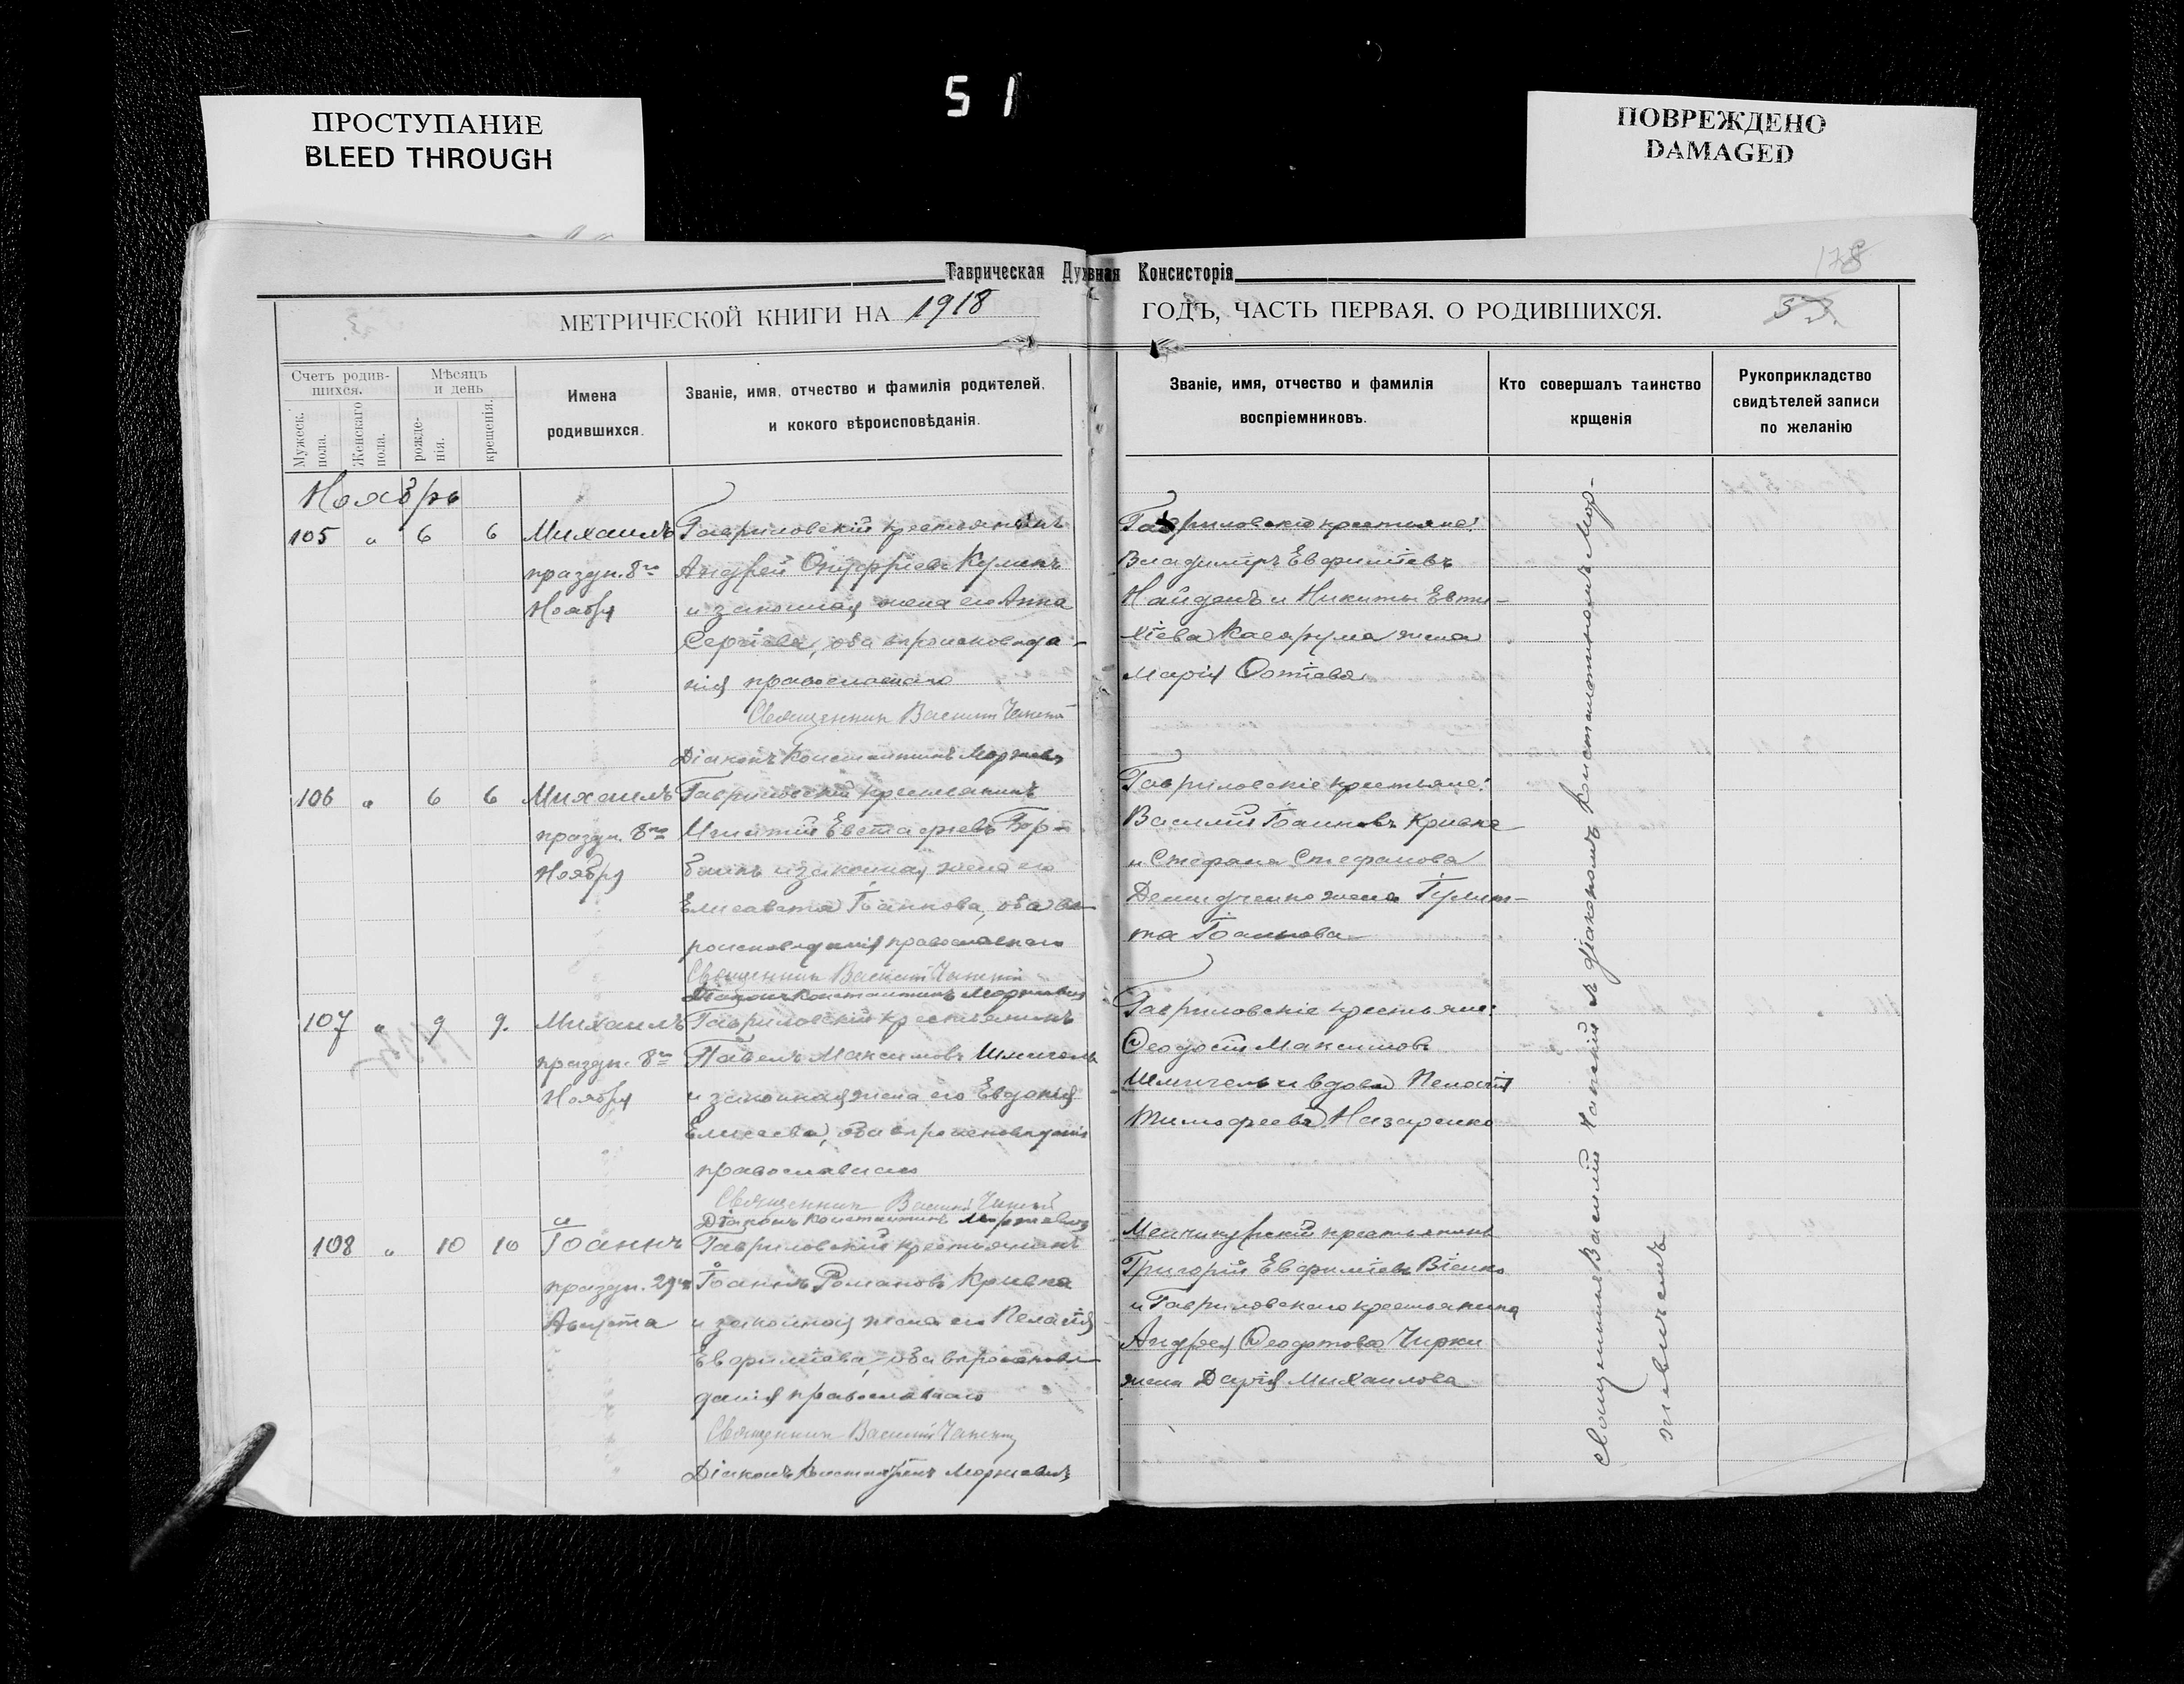 51
ПРОСТУПАНИЕ
BLEED THROUGH
ПОВРЕЖДЕНО
DAMAGED
Таврическая Духовная Консисторія
178
МЕТРИЧЕСКОЙ КНИГИ НА 1918
ГОДЪ, ЧАСТЬ ПЕРВАЯ. О РОДИВШИХСЯ.
Счетъ родив-
шихся.
Мужеск.
пола.
Женскаго
пола.
Мѣсяцъ
и день
рожде-
нія.
крещенія.
Имена
родившихся.
Званіе, имя, отчество и фамилія родителей,
и кокого вѣроисповѣданія.
Званіе, имя, отчество и фамилія
воспріемниковъ.
Кто совершалъ таинство
крщенія
Рукоприкладство
свидѣтелей записи
по желанію
Ноябрь
105 " 6 6 Михаилъ
праздн. 8го
Ноября
Гавриловскій крестьянинъ
Андрей Онуфріевъ
и законная жена его Анна
Сергіева, оба вѣроисповѣда-
нія православнаго
Священник Василий
Діаконъ Константинъ
Гавриловскіе крестьяне:
Владиміръ Евфиміевъ
Найденъ и Никиты Евти-
хіева жена
Марія
106 " 6 6 Михаилъ
праздн. 8го
Ноября
Гавриловскій крестьянинъ
Евстафіевъ
и законная жена его
Елисавета Іоаннова, оба вѣ-
роисповѣданія православнаго
Священник Василий
Діаконъ Константинъ
Гавриловскіе крестьяне:
Василій Іоанновъ Кривка
и Стефана Стефанова
Демидченко жена Іулит-
та Іоаннова
107 " 9 9. Михаилъ
праздн. 8го
Ноября
Гавриловскій крестьянинъ
Павелъ Максимовъ Шмигель
и законная жена его Евдокія
Елисеева, оба вѣроисповѣданія
православнаго
Священник Василий
Діаконъ Константинъ
Гавриловскіе крестьяне:
Ѳеодосій Максимовъ
Шмигель и вдова Пелагія
Тимофеева Назаренко
108 " 10 10 Іоаннъ
праздн. 29го
Августа
Гавриловскій крестьянинъ
Іоаннъ Романовъ Кривка
и законная жена его Пелагія
Евфиміева, оба вѣроисповѣ-
данія православнаго
Священник Василий
Діаконъ Константинъ
крестьянинъ
Григорій Евфиміевъ
и Гавриловскаго крестьянина
Андрея Ѳеодотова Чирки
жена Дарія Михаилова
Священникъ Василій съ діакономъ Константиномъ Мор-